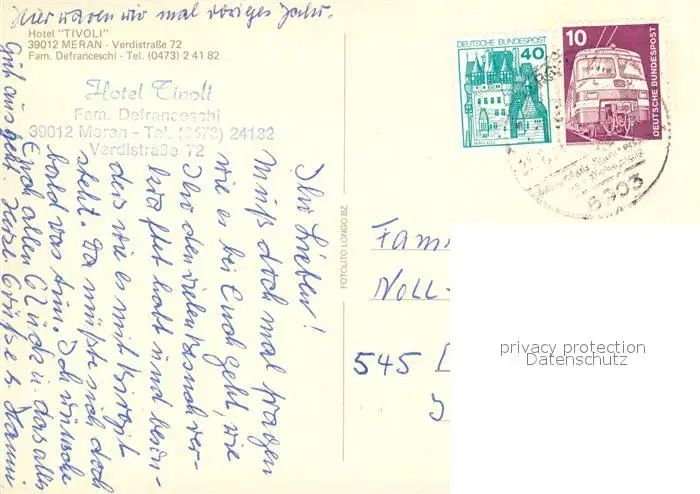 Hier waren wir mal voriges Jahr.
Hotel "TIVOLI"
39012 MERAN - Verdistraße 72
Fam. Defranceschi - Tel. (0473) 2 41 82
Hotel Tivoli
Fam. Defranceschi
39012 Meran - Tel. (0473) 24182
Verdistraße 72
Ihr Lieben!
Muß doch mal fragen
wie es bei Euch geht, wie
Ihr den vielen Besuch ver-
kraftet habt und beson-
ders wie es mit Birgit
steht. Da müßte sich doch
bald was tun. Ich wünsche
Euch allen Glück u. das alles
Gut aus geht. Herzl. Grüße
FOTOLITO LONGO BZ
DEUTSCHE BUNDESPOST
40
BURG ELTZ
10
DEUTSCHE BUNDESPOST
6303
Fam
Noll-
545
privacy protection
Datenschutz